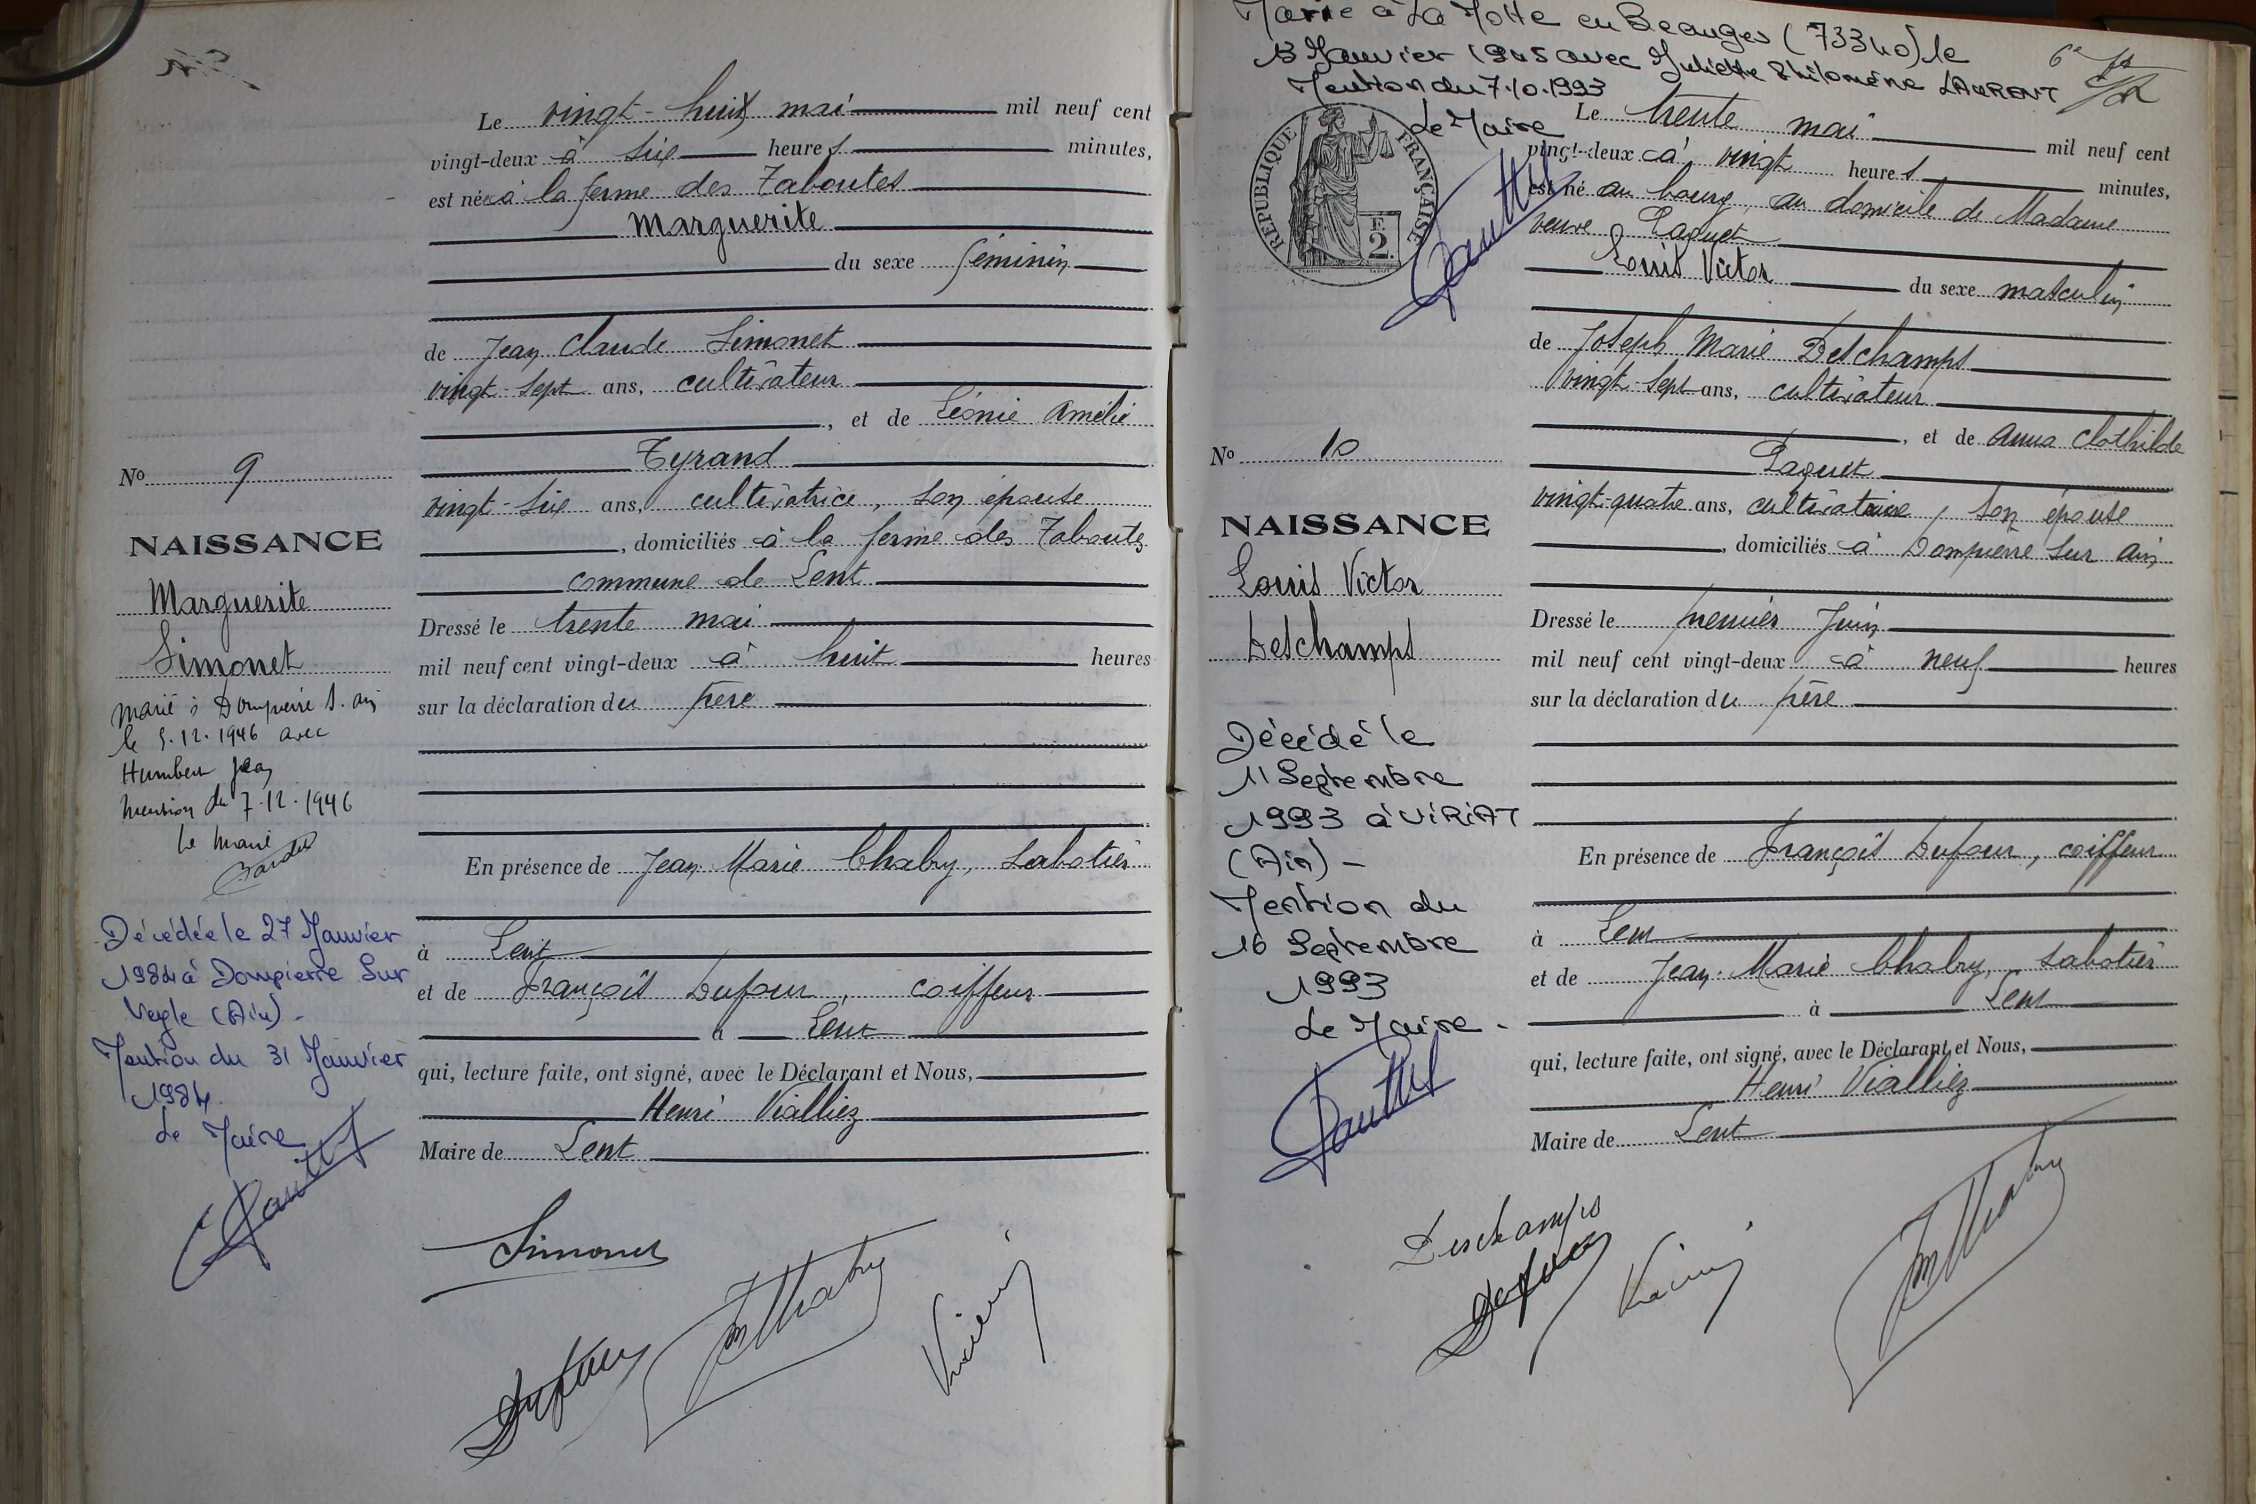 Le vingt-huit mai mil neuf cent
vingt-deux à six heures minutes,
est née à la ferme des Taboutes
Marguerite
du sexe féminin
de Jean Claude Simonet
vingt-sept ans, cultivateur
, et de Léonie Amélie
Tyrand
vingt-six ans, cultivatrice, son épouse
, domiciliés à la ferme des Taboutes
commune de Lent
Dressé le trente mai
mil neuf cent vingt-deux à huit heures
sur la déclaration du père
En présence de Jean-Marie Chabry, sabotier
à Lent
et de François Dufour, coiffeur
à Lent
qui, lecture faite, ont signé, avec le Déclarant et Nous,
Henri Vialliez
Maire de Lent
Simonet
No 9
NAISSANCE
Marguerite
Simonet
marié à Dompierre s. ain
le 5.12.1946 avec
Humbert Jean
mention du 7.12.1946
Le Maire
Décédée le 27 Janvier
1984 à Dompierre Sur
Veyle (Ain) -
Mention du 31 Janvier
1984.
Le Maire
Marié à La Motte en Beauges (73340) le
13 Janvier 1945 avec Juliette Philomène LAURENT
Mention du 7.10.1993
Le Maire
RÉPUBLIQUE FRANÇAISE
F.
2.
Le trente mai mil neuf cent
vingt-deux à vingt heures minutes,
est né au bourg, au domicile de Madame
veuve Paquet
Louis Victor
du sexe masculin
de Joseph Marie Deschamps
vingt-sept ans, cultivateur
, et de Anna Clothilde
Paquet
vingt-quatre ans, cultivatrice, son épouse
, domiciliés à Dompierre sur ain
Dressé le premier Juin
mil neuf cent vingt-deux à neuf heures
sur la déclaration du père
En présence de François Dufour, coiffeur
à Lent
et de Jean-Marie Chabry, sabotier
à Lent
qui, lecture faite, ont signé, avec le Déclarant et Nous,
Henri Vialliez
Maire de Lent
Deschamps
No 10
NAISSANCE
Louis Victor
Deschamps
Décédé le
11 Septembre
1993 à VIRIAT
(Ain) -
Mention du
16 Septembre
1993
Le Maire -